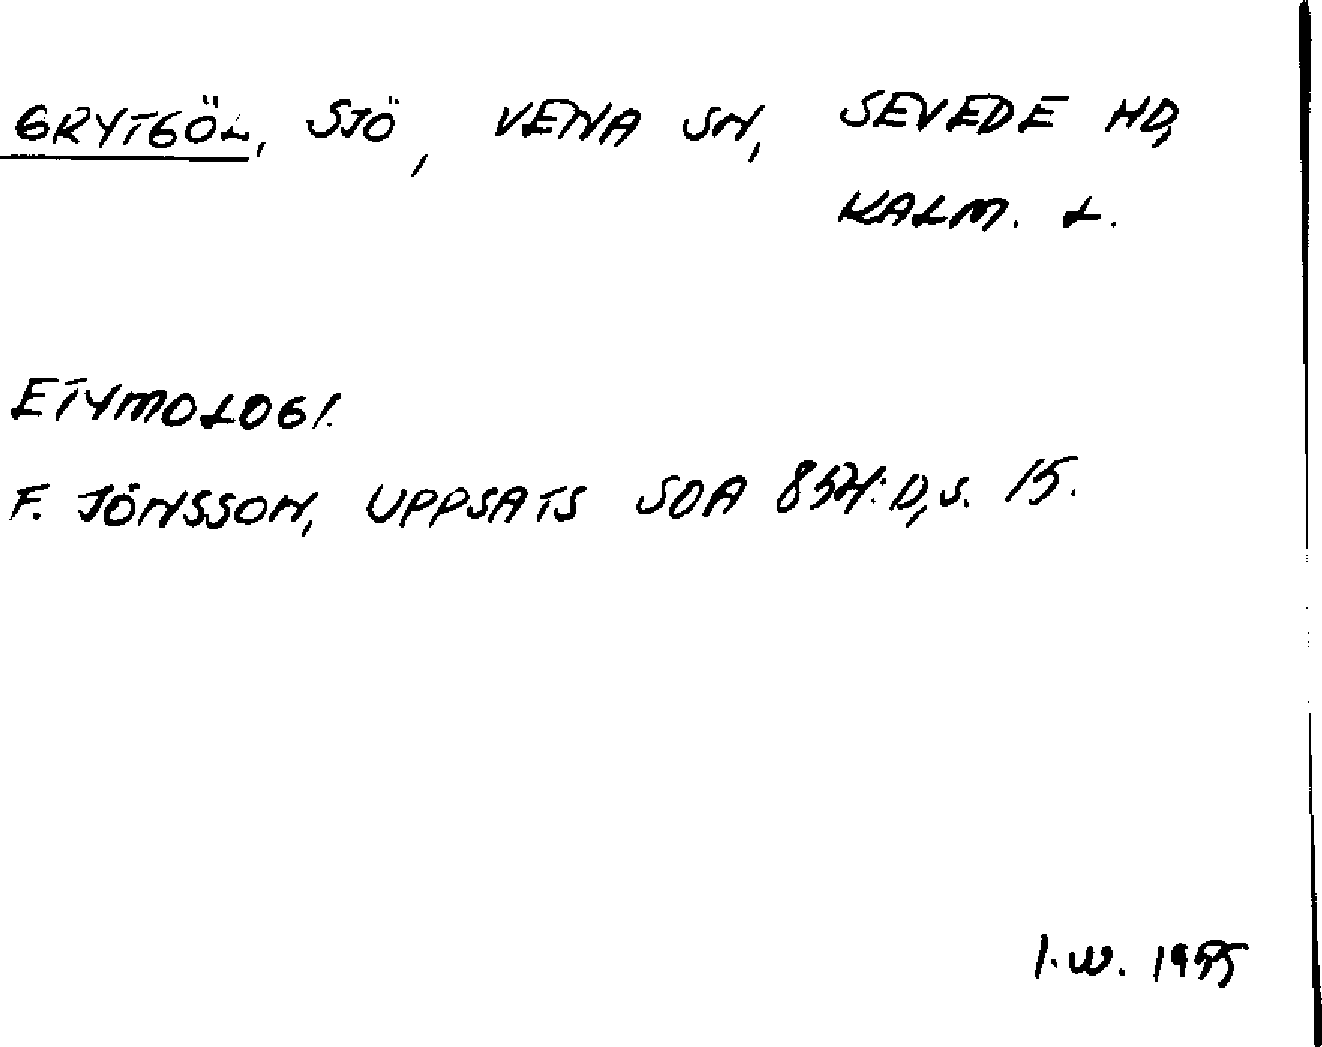 GRYTGÖL, SJÖ, VENA SN, SEVEDE HD,
KALM. L.
ETYMOLOGI.
F. JÖNSSON, UPPSATS SOA 854:D, S. 15.
I.W. 1955